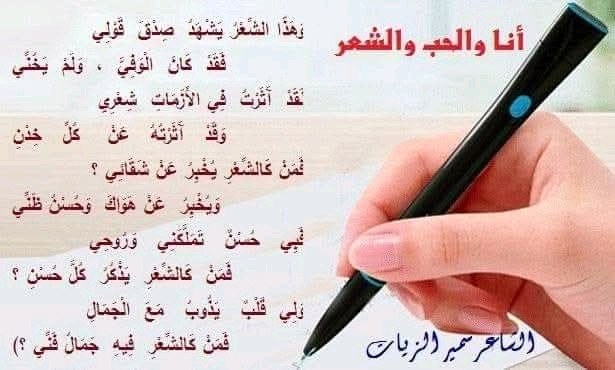 أنا والحب والشعر
وَهَذَا الشِّعْرُ يَشْهَدُ صِدْقَ قَوْلِي
فَقَدْ كَانَ الْوَفِيَّ ، وَلَمْ يَخُنِّي
لَقَدْ آثَرْتُ فِي الأَزَمَاتِ شِعْرِي
وَقَدْ آثَرْتُهُ عَنْ كُلِّ خِدْنِ
فَمَنْ كَالشِّعْرِ يُخْبِرُ عَنْ شَقَائِي ؟
وَيُخْبِرُ عَنْ هَوَاكَ وَحُسْنُ ظَنِّي
فَبِي حُسْنٌ تَمَلَّكَنِي وَرُوحِي
فَمَنْ كَالشِّعْرِ يَذْكُرُ كُلَّ حُسْنِ ؟
وَلِي قَلْبٌ يَذُوبُ مَعَ الْجَمَالِ
فَمَنْ كَالشِّعْرِ فِيهِ جَمَالُ فَنِّي ؟)
الشاعر سمير الزيات